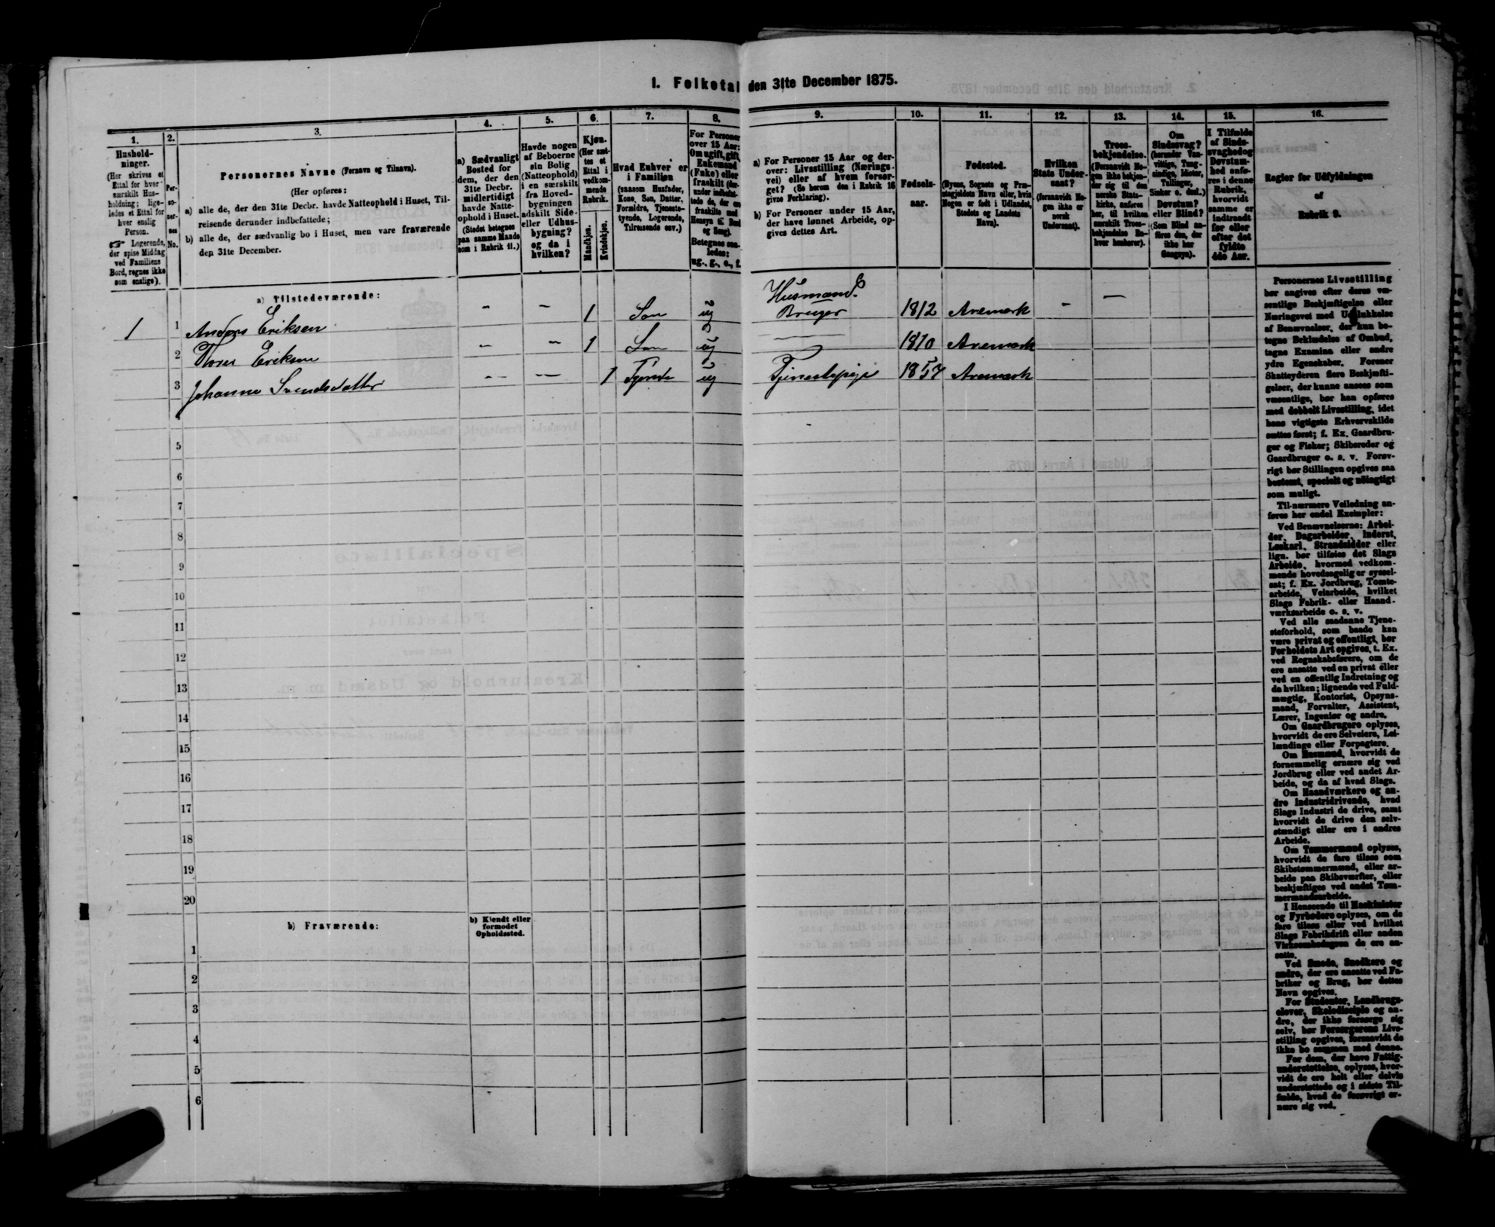 1. Folketal den 31te December 1875.
1. 2. 3. 4. 5. 6. 7. 8. 9. 10. 11. 12. 13. 14. 15. 16.
Hushold-
ninger.
(Her skrives et
Ettal for hver
særskilt Hus-
holdning; lige-
ledes et Ettal for
hver enslig
Person.
☞ Logerende,
der spise Middag
ved Familiens
Bord, regnes ikke
som enslige).
Per-
so-
ner-
nes
No.
Personernes Navne (Fornavn og Tilnavn).
(Her opføres:
a) alle de, der den 31te Decbr. havde Natteophold i Huset, Til-
reisende derunder indbefattede;
b) alle de, der sædvanlig bo i Huset, men vare fraværende
den 31te December.
a) Sædvanligt
Bosted for
dem, der den
31te Decbr.
midlertidigt
havde Natte-
ophold i Huset.
(Stedet betegnes
paa samme Maade
som i Rubrik 11.)
Havde nogen
af Beboerne
sin Bolig
(Natteophold)
i en særskilt
fra Hoved-
bygningen
adskilt Side-
eller Udhus-
bygning?
og da i
hvilken?
Kjøn.
(Her sæt-
tes et
Ettal i
vedkom-
mende
Rubrik.
Mandkjøn.
Kvindekjøn.
Hvad Enhver er
i Familien
(saasom Husfader,
Kone, Søn, Datter,
Forældre, Tjeneste-
tyende, Logerende,
Tilreisende osv.)
For Personer
over 15 Aar:
Om ugift, gift,
Enkemand
(Enke) eller
fraskilt
Betegnes saa-
ledes:
ug., g., e., f.
a) For Personer 15 Aar og der-
over: Livsstilling (Nærings-
vei) eller af hvem forsør-
get? (Se herom den i Rubrik 16
givne Forklaring).
b) For Personer under 15 Aar,
der have lønnet Arbeide, op-
gives dettes Art.
Fødsels-
aar.
Fødested.
(Byens, Sognets og Præ-
stegjeldets Navn eller, hvis
Nogen er født i Udlandet,
Stedets og Landets
Navn).
Hvilken
Stats Under-
saat?
(forsaavidt No-
gen ikke er
norsk
Undersaat).
Troes-
bekjendelse.
Om
Sindssvag?
Døvstum?
eller Blind?
I Tilfælde
af Sinds-
svaghed og
Døvstum-
hed anfø-
res i denne
Rubrik,
hvorvidt
samme er
indtraadt
før eller
efter det
fyldte
4de Aar.
Regler for Udfyldningen
af
Rubrik 9.
a) Tilstedeværende:
1 1 Anders Eriksen — — 1 Søn ug Husmand Bruger 1812 Aremark — —
2 Thores Eriksen — — 1 Søn ug 1810 Aremark
3 Johanne Svendsdatter — — 1 Tjenste ug Tjenestepige 1857 Aremark
4
5
6
7
8
9
10
11
12
13
14
15
16
17
18
19
20
b) Fraværende:
b) Kjendt eller
formodet
Opholdssted.
1
2
3
4
5
6
Personernes Livsstilling
bør angives efter deres væ-
sentlige Beskjæftigelse eller
Næringsvei med Udelukkelse
af Benævnelser, der kun be-
tegne Bekledelse af Ombud,
tagne Examina eller andre
ydre Egenskaber. Forener
Skatteyderen flere Beskjæfti-
gelser, der kunne ansees som
væsentlige, bør han opføres
med dobbelt Livsstilling, idet
hans vigtigste Erhvervskilde
sættes først; f. Ex. Gaardbru-
ger og Fisker; Skibsreder og
Gaardbruger o. s. v. Forøv-
rigt bør Stillingen opgives saa
bestemt, specielt og nøiagtigt
som muligt.
Til nærmere Veiledning an-
føres her endel Exempler:
Ved Benævnelserne: Arbei-
der, Dagarbeider, Inderst,
Løskarl, Strandsidder eller
lign. bør tilføies det Slags
Arbeide, hvormed vedkom-
mende hovedsagelig er syssel-
sat; f. Ex. Jordbrug, Tomte-
arbeide, Veiarbeide, hvilket
Slags Fabrik- eller Haand-
værksarbeide o. s. v.
Ved alle saadanne Tjene-
steforhold, som baade kan
være privat og offentligt, bør
Forholdets Art opgives, t. Ex.
ved Regnskabsførere, om de
ere ansatte ved en privat eller
ved en offentlig Indretning og
da hvilken; lignende ved Fuld-
mægtig, Kontorist, Opsyns-
mand, Forvalter, Assistent,
Lærer, Ingeniør og andre.
Om Gaardbrugere oplyses,
hvorvidt de ere Selveiere, Lei-
lændinge eller Forpagtere.
Om Husmænd, hvorvidt de
fornemmelig ernære sig ved
Jordbrug eller ved andet Ar-
beide, og da af hvad Slags.
Om Haandværkere og an-
dre Industridrivende, hvad
Slags Industri de drive, samt
hvorvidt de drive den selv-
stændigt eller ere i andres
Arbeide.
Om Tømmermænd oplyses,
hvorvidt de fare tilsøs som
Skibstømmermænd, eller ar-
beide paa Skibsværfter, eller
beskjæftiges ved andet Tøm-
mermandsarbeide.
I Henseende til Maskinister
og Fyrbødere oplyses, om de
fare tilsøs eller ved hvilket
Slags Fabrikdrift eller anden
Virksomhed de ere an-
satte.
Ved Smede, Snedkere og
andre, der ere ansatte ved Fa-
briker og Brug, bør dettes
Navn opgives.
For Studenter, Landbrugs-
elever, Skoledisciple og an-
dre, der ikke forsørge sig
selv, bør Forsørgerens Livs-
stilling opgives, forsaavidt de
ikke bo sammen med denne.
For dem, der have Fattig-
understøttelse, oplyses, hvor-
vidt de ere helt eller delvis
understøttede og i sidste Til-
fælde, hvad de forøvrigt er-
nære sig ved.